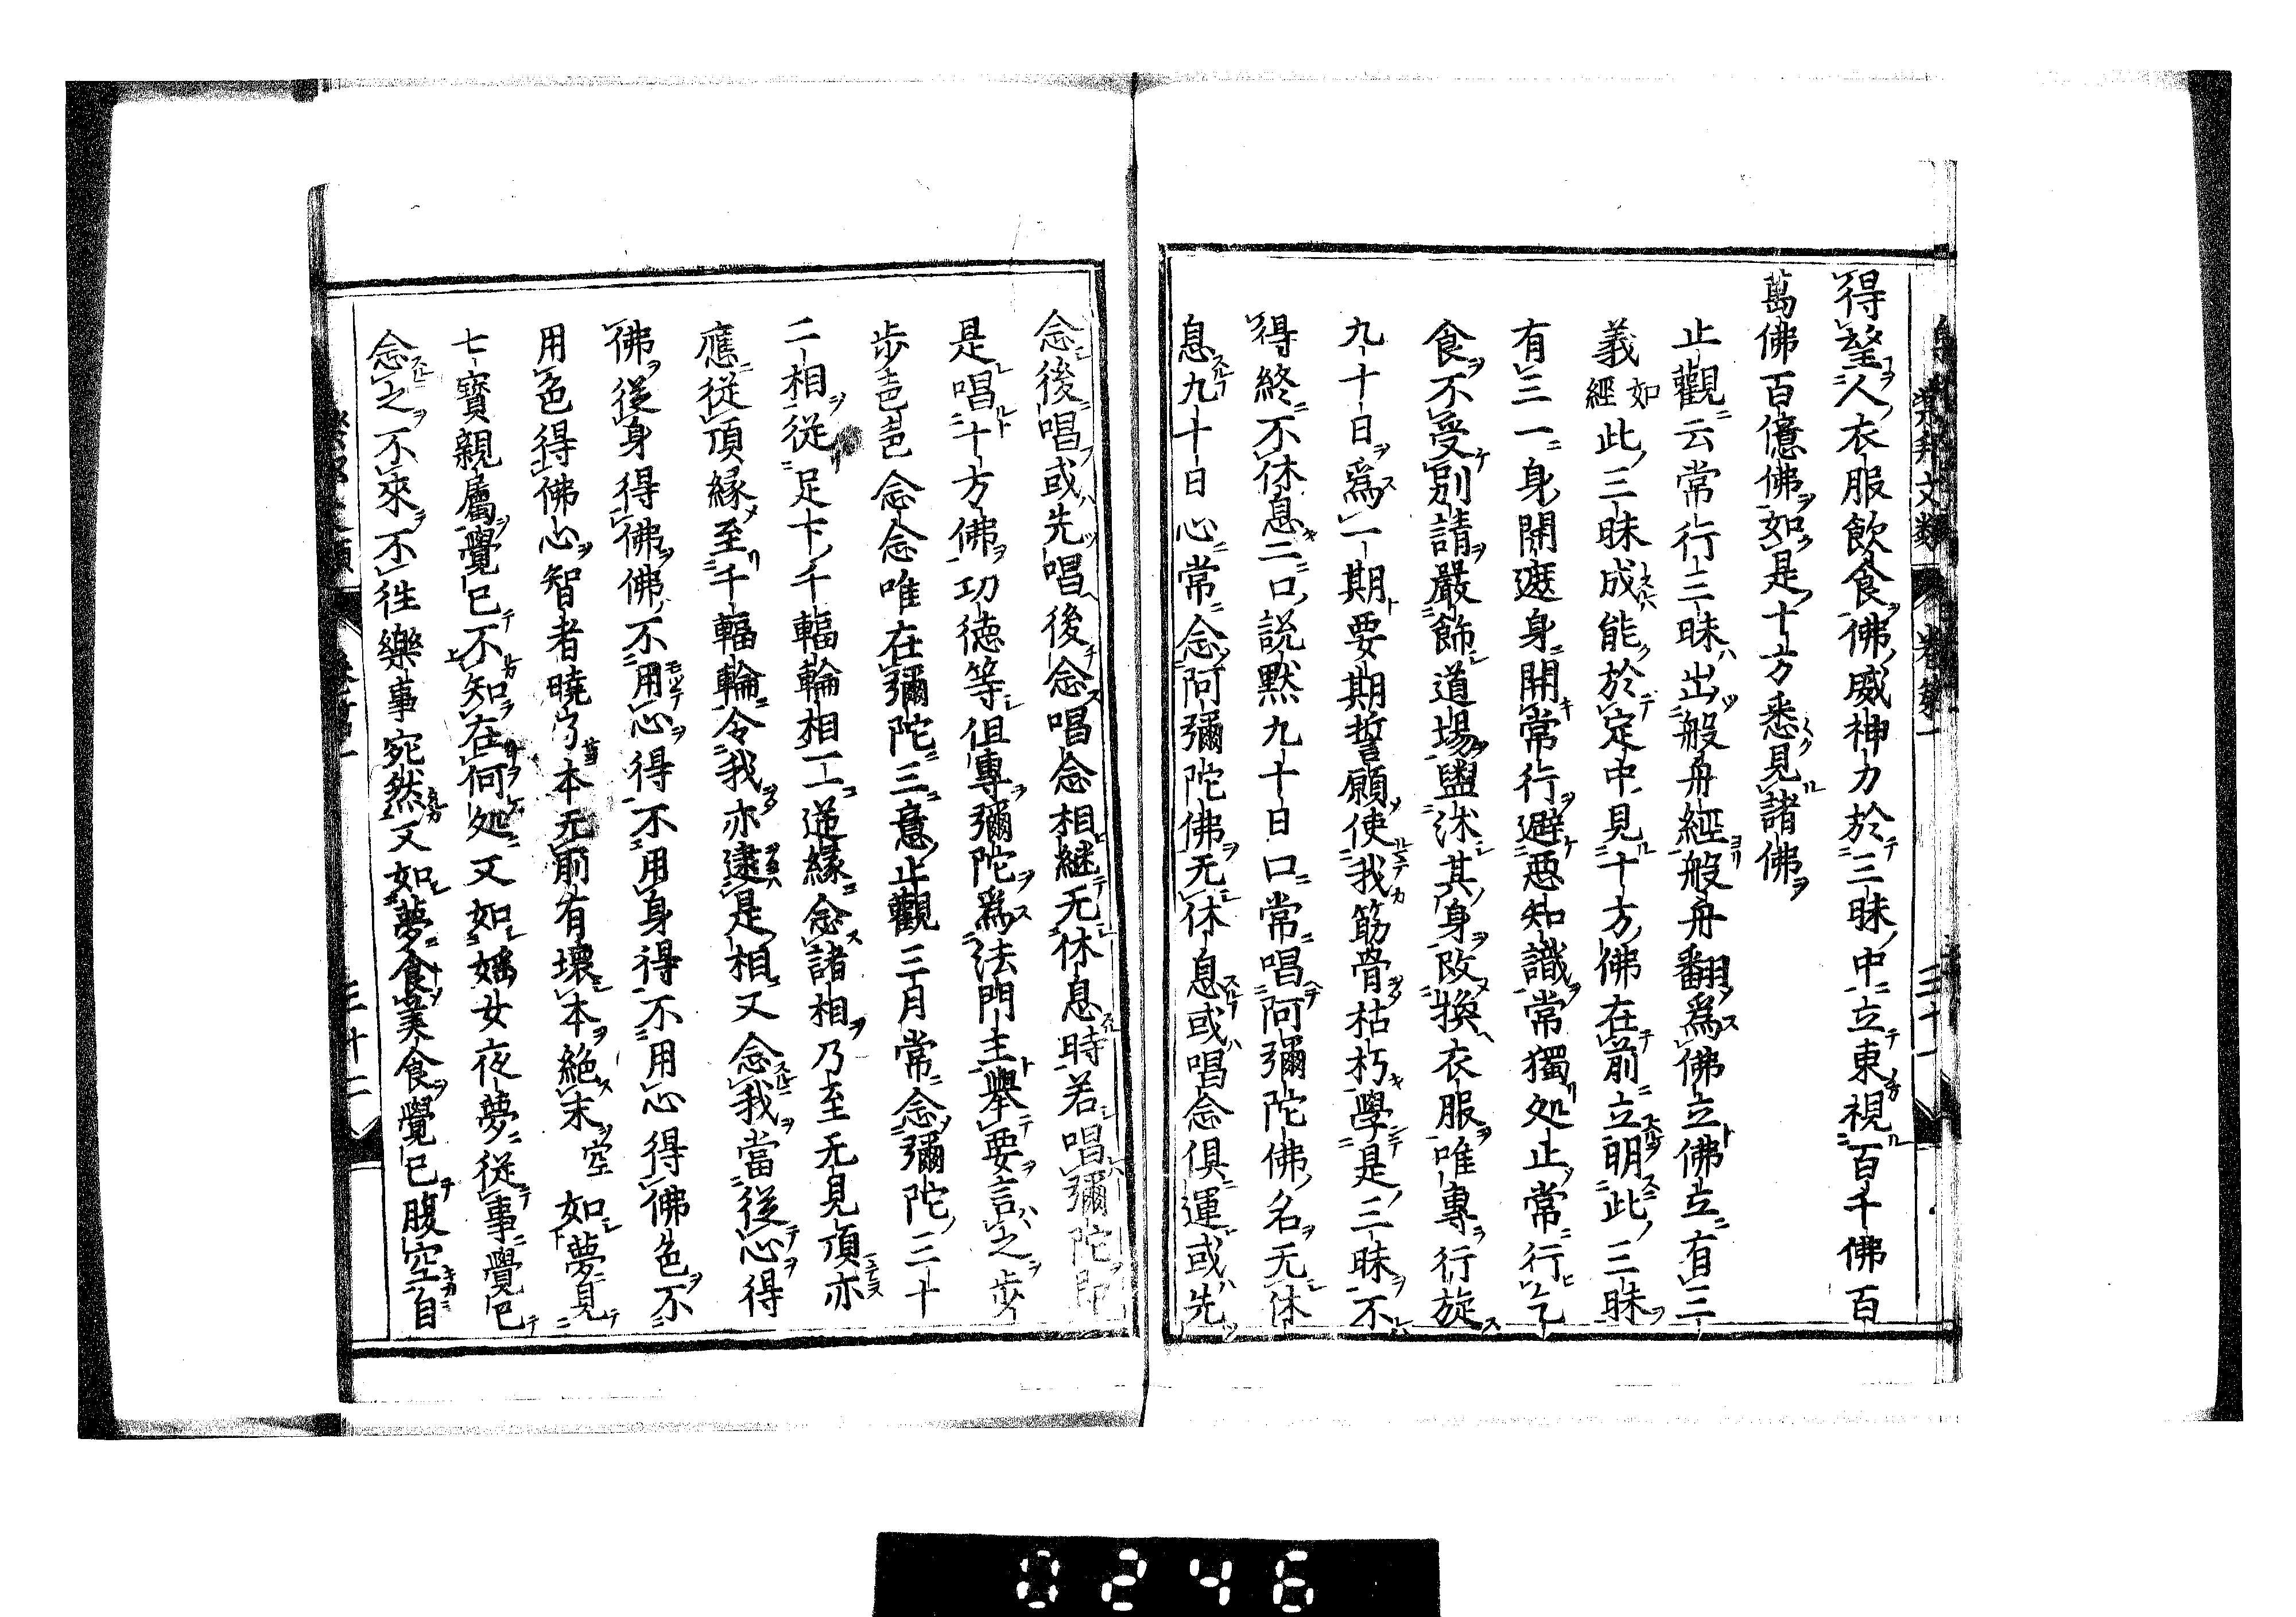 得望人衣服飲食佛威神力於三昧中立東視百千佛百
萬佛百億佛如是十方悉見諸佛
止觀云常行三昧出般舟經般舟翻爲佛立佛立有三
義如經此三昧成能於定中見十方佛在前立明此三昧
有三一身開遮身開常行避惡知識常獨処止常行乞
食不受別請嚴飾道場盥沐其身改換衣服唯專行旋
九十日爲一期要期誓願使我筋骨枯朽學是三昧不
得終不休息二口說默九十日口常唱阿彌陀佛名无休
息九十日心常念阿彌陀佛无休息或唱念俱運或先
念後唱或先唱後念唱念相継无休息時若唱彌陀即
是唱十方佛功徳等但專彌陀爲法門主舉要言之步
步邑邑念念唯在彌陀三意止觀三月常念彌陀三十
二相從足下千輻輪相一一逆緣念諸相乃至无見頂亦
應從頂緣至千輻輪令我亦逮是相又念我當從心得
佛從身得佛佛不用心得不用身得不用心得佛色不
用色得佛心智者曉了本无前有壞本絶末空如夢見
七寶親屬覺已不知在何処又如婬女夜夢從事覺已
念之不來不往樂事宛然又如夢食美食覺已腹空自
樂邦文類 卷第一 三十一
三十二
0246